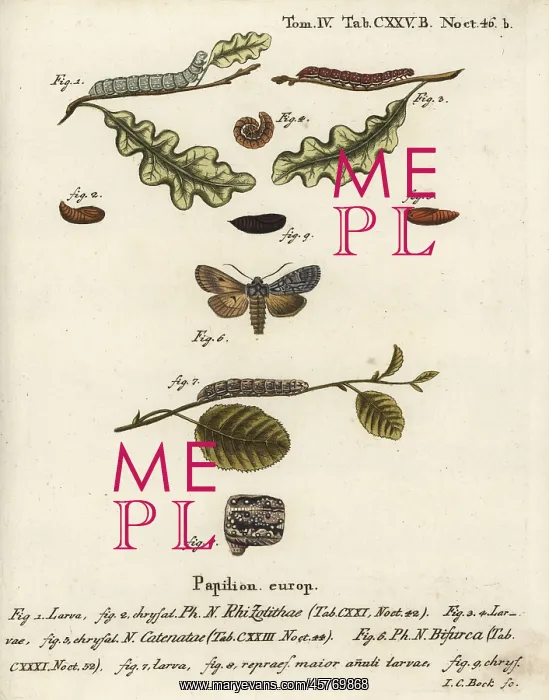 Tom. IV. Tab. CXXV. B. Noct. 46. b.
Fig. 1.
Fig. 3.
Fig. 4.
fig. 2.
fig. 9.
ME
PL
Fig. 6.
fig. 7.
ME
PL
Papilion. europ.
Fig 1. Larva, fig. 2. chrysal. Ph. N. Rhizolithae (Tab. CXXI, Noct. 42). Fig. 3. 4. Lar-
vae, fig. 5, chrysal. N. Catenatae (Tab. CXXIII. Noct. 44). Fig. 6. Ph. N. Bifurca (Tab.
CXXXI. Noct. 52). fig. 7, larva, fig. 8, repraes. maior anuli larvae, fig. 9. chrys.
I. C. Bock sc.
www.maryevans.com/45769868